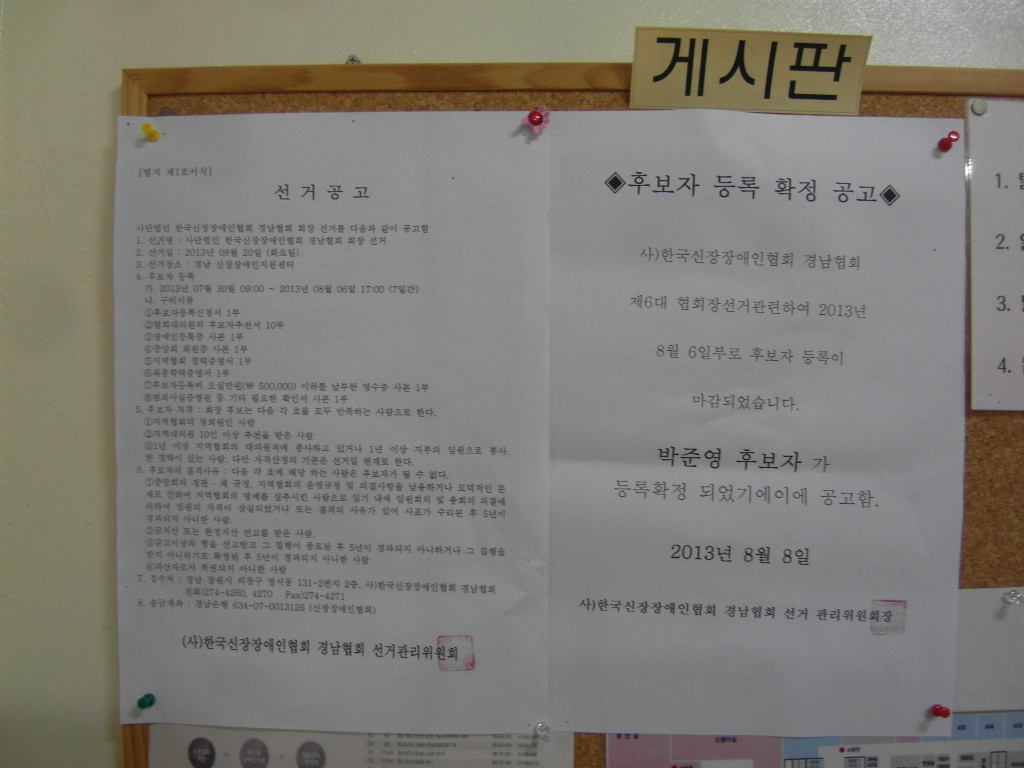 게시판
[별지 제1호서식]
선 거 공 고
사단법인 한국신장장애인협회 경남협회 회장 선거를 다음과 같이 공고함
1. 선거명 : 사단법인 한국신장장애인협회 경남협회 회장 선거
2. 선거일 : 2013년 08월 20일 (화요일)
3. 선거장소 : 경남 신장장애인지원센터
4. 후보자 등록
가. 2013년 07월 30일 09:00 ~ 2013년 08월 06일 17:00 (7일간)
나. 구비서류
①후보자등록신청서 1부
②협회대의원의 후보자추천서 10부
③장애인등록증 사본 1부
④중앙회 회원증 사본 1부
⑤지역협회 경력증명서 1부
⑥최종학력증명서 1부
⑦후보자등록비 오십만원(₩ 500,000) 이라를 납부한 영수증 사본 1부
⑧범죄사실증명원 등 기타 필요한 확인서 사본 1부
5. 후보자 자격 : 회장 후보는 다음 각 호를 모두 만족하는 사람으로 한다.
①지역협회의 정회원인 사람
②지역대의원 10인 이상 추천을 받은 사람
③1년 이상 지역협회의 대의원직에 종사하고 있거나 1년 이상 지부의 임원으로 봉사
한 경력이 있는 사람. 다만 자격산정의 기준은 선거일 현재로 한다.
6. 후보자의 결격사유 : 다음 각 호에 해당 하는 사람은 후보자가 될 수 없다.
①중앙회의 정관 · 제 규정, 지역협회의 운영규정 및 의결사항을 남용하거나 도덕적인 문
제로 인하여 지역협회의 명예를 실추시킨 사람으로 임기 내에 임원회의 및 총회의 의결에
의하여 임원의 자격이 상실되었거나 또는 결격의 사유가 있어 사표가 수리된 후 5년이
경과되지 아니한 사람.
②금치산 또는 한정치산 선고를 받은 사람.
③금고이상의 형을 선고받고 그 집행이 종료된 후 5년이 경과되지 아니하거나 그 집행을
받지 아니하기로 확정된 후 5년이 경과되지 아니한 사람
④파산자로서 복권되지 아니한 사람
7. 접수처 : 경남 창원시 의창구 명서동 131-2번지 2층, 사)한국신장장애인협회 경남협회
전화)274-4260, 4270 Fax)274-4271
8. 송금계좌 : 경남은행 634-07-0013126 (신장장애인협회)
(사)한국신장장애인협회 경남협회 선거관리위원회
◈후보자 등록 확정 공고◈
사)한국신장장애인협회 경남협회
제6대 협회장선거관련하여 2013년
8월 6일부로 후보자 등록이
마감되었습니다.
박준영 후보자 가
등록확정 되었기에이에 공고함.
2013년 8월 8일
사)한국신장장애인협회 경남협회 선거 관리위원회장
1.
2.
3.
4.